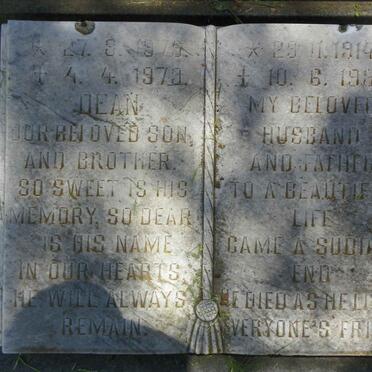 * 27. 8. 197
† 4. 4. 1973.
DEAN
OUR BELOVED SON
AND BROTHER
SO SWEET IS HIS
MEMORY, SO DEAR
IS HIS NAME
IN OUR HEARTS
HE WILL ALWAYS
REMAIN.
* 29. 11. 1914
† 10. 6. 198
MY BELOVED
HUSBAND
AND FATHE
TO A BEAUTIF
LIFE
CAME A SUDD
END
HE DIED AS HE LI
EVERYONE'S FRI